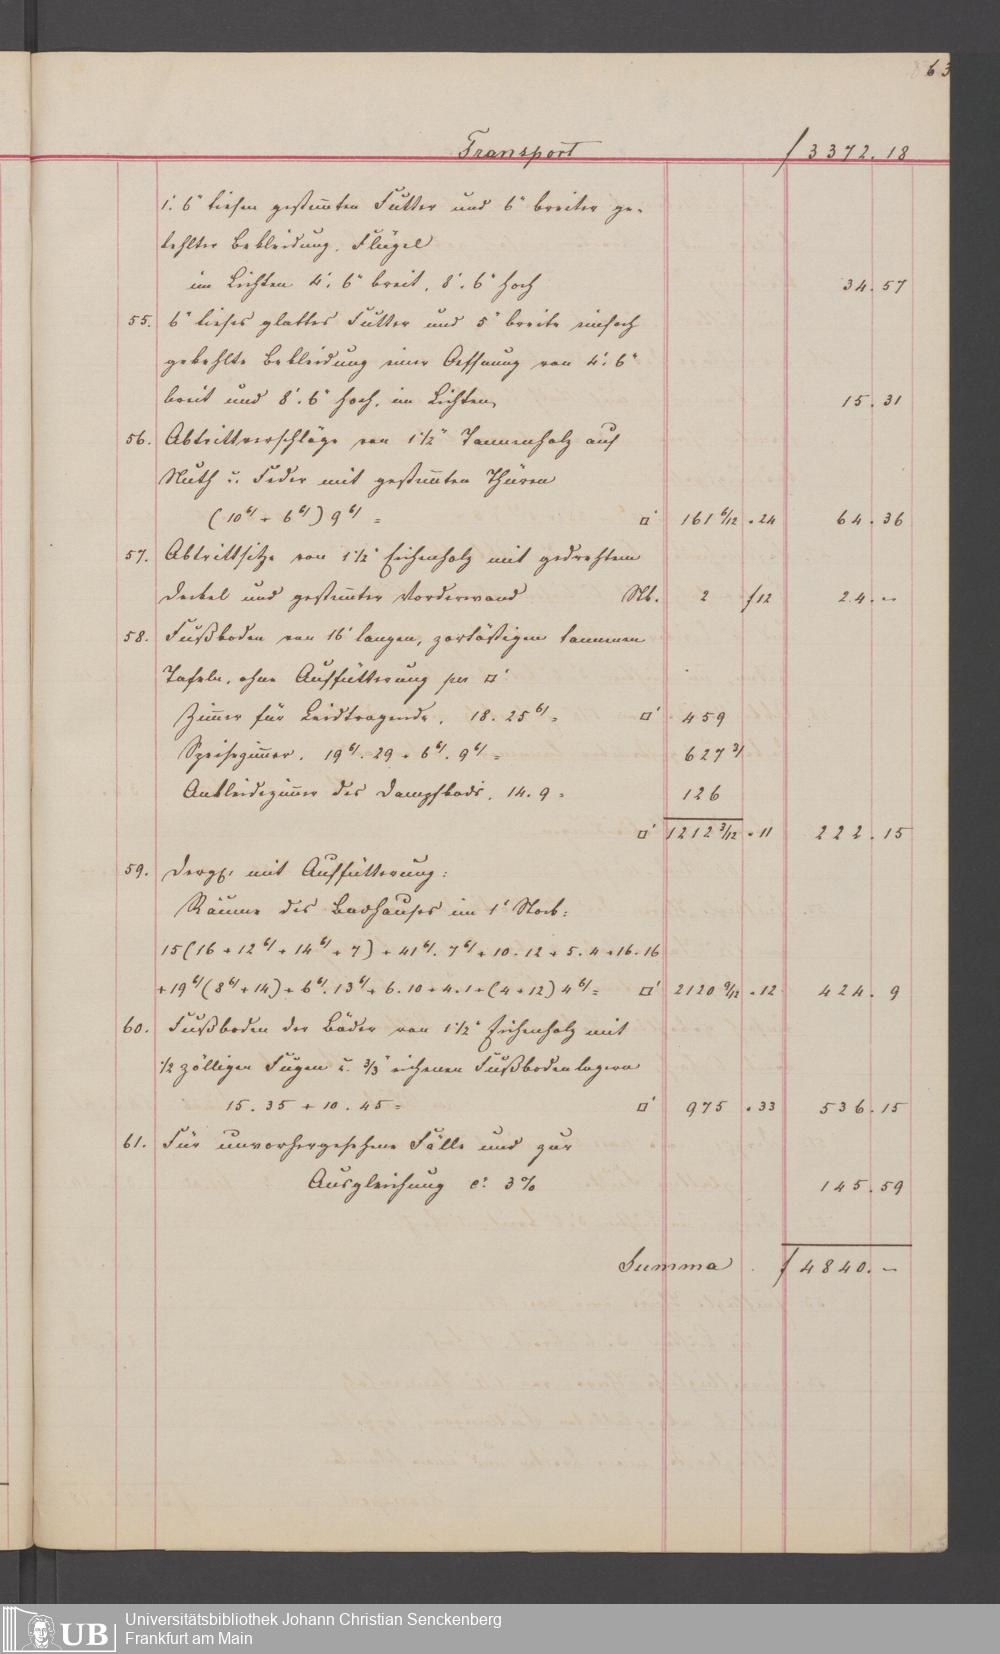 63
Transport f 3372. 18
1'. 6" tiefen gestemten Futter und 6" breiter ge-
kehlter Bekleidung. Flügel
im Lichten 4'. 6" breit, 8'. 6" hoch 34. 57
55. 6" tiefes glattes Futter und 5" breite einfach
gekehlte Bekleidung einer Oeffnung von 4'. 6"
breit und 8'. 6" hoch, im Lichten, 15. 31
56. Abtrittverschläge von 1 1/2" Tannenholz auf
Nuth u. Feder mit gestemten Thüren
(10 6/ + 6 6/) 9 6/ = □' 161 6/12 . 24 64. 36
57. Abtrittsitze von 1 1/2" Eichenholz mit gedrehtem
Deckel und gestemter Vorderwand Stk. 2 f 12 24. –
58. Fußboden von 16' langen, tannenen
Tafeln, ohne Auffütterung per □'
Zimmer für Leidtragende. 18. 25 6/ = □' 459
Speisezimmer. 19 6/. 29 + 6 6/. 9 6/ = 627 3/
Ankleidezimmer des Dampfbads. 14. 9 = 126
□' 1212 3/12 . 11 222. 15
59. Dergl. mit Auffütterung:
Räume des Badhauses im 1' Stock:
15 (16 + 12 6/ + 14 6/ + 7) + 41 6/. 7 6/ + 10. 12 + 5. 4 + 16. 16
+ 19 6/ (8 6/ + 14) + 6 6/. 13 6/ + 6. 10 + 4. 1 + (4 + 12) 4 6/ = □' 2120 9/12 . 12 424. 9
60. Fußboden der Bäder von 1 1/2" Eichenholz mit
1/2 zölligen Fugen u. 3/3" eichenen Fußbodenlagern
15. 35 + 10. 45 = □' 975 . 33 536. 15
61. Für unvorhergesehene Fälle und zur
Ausgleichung ca 3% 145. 59
Summa f 4840. –
UB
Universitätsbibliothek Johann Christian Senckenberg
Frankfurt am Main